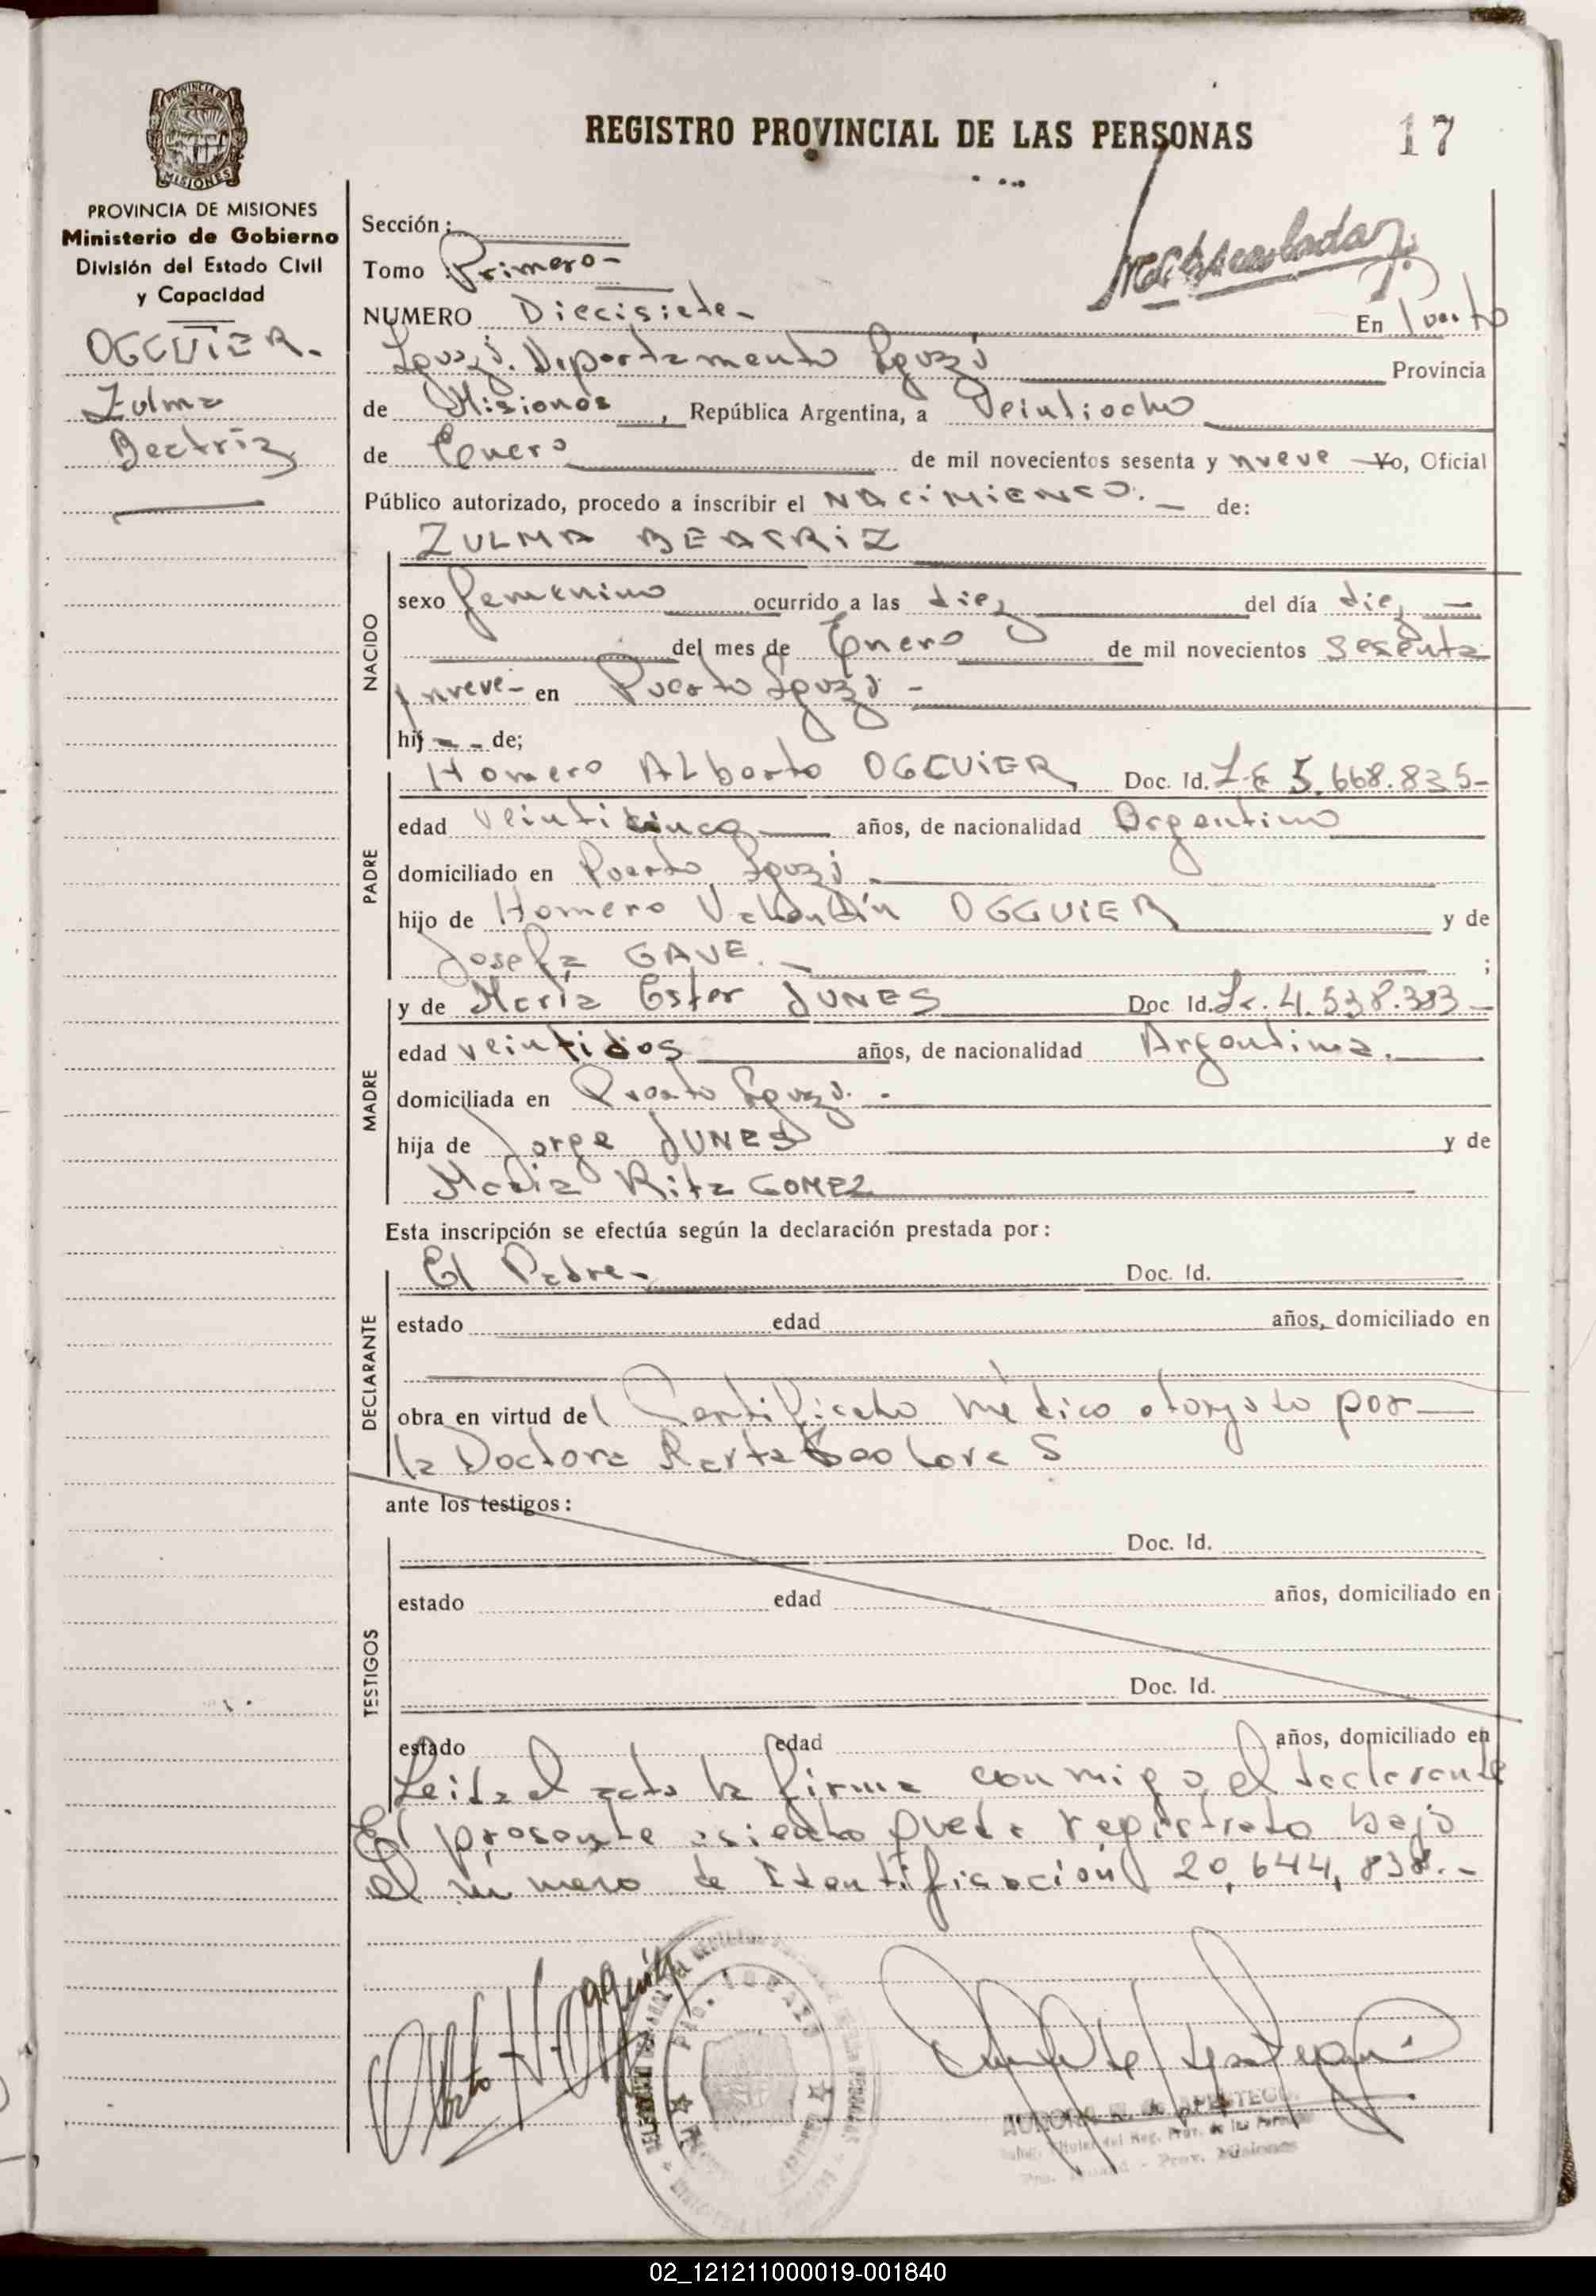 REGISTRO PROVINCIAL DE LAS PERSONAS
17
PROVINCIA DE
MISIONES
PROVINCIA DE MISIONES
Ministerio de Gobierno
División del Estado Civil
y Capacidad
OGGUIER.
Zulma
Beatriz
Sección:
Tomo Primero
NUMERO Diecisiete En Puerto
Iguazú. Departamento Iguazú Provincia
de Misiones, República Argentina, a Veintiocho
de Enero de mil novecientos sesenta y nueve Yo, Oficial
Público autorizado, procedo a inscribir el NACIMIENTO. de:
NACIDO
ZULMA BEATRIZ
sexo femenino ocurrido a las diez del día diez
del mes de Enero de mil novecientos sesenta
y nueve en Puerto Iguazú
hij de;
PADRE
Homero Alberto OGGUIER Doc. Id. L E 5.668.835
edad veinticinco años, de nacionalidad Argentino
domiciliado en Puerto Iguazú
hijo de Homero Valentín OGGUIER y de
Josefa GAVE. ;
MADRE
y de María Ester JUNES Doc Id. L c. 4.538.383
edad veintidos años, de nacionalidad Argentina.
domiciliada en Puerto Iguazú.
hija de Jorge JUNES y de
María Rita GOMEZ
Esta inscripción se efectúa según la declaración prestada por:
DECLARANTE
El Padre Doc. Id.
estado edad años, domiciliado en
obra en virtud del Certificato médico otorgado por
la Doctora
ante los testigos:
TESTIGOS
Doc. Id.
estado edad años, domiciliado en
Doc. Id.
estado edad años, domiciliado en
Leida el acta la firma conmigo, el declarante
El presente asiento queda registrado bajo
el número de Identificación 20,644,838.-
Prov. Misiones
02_121211000019-001840